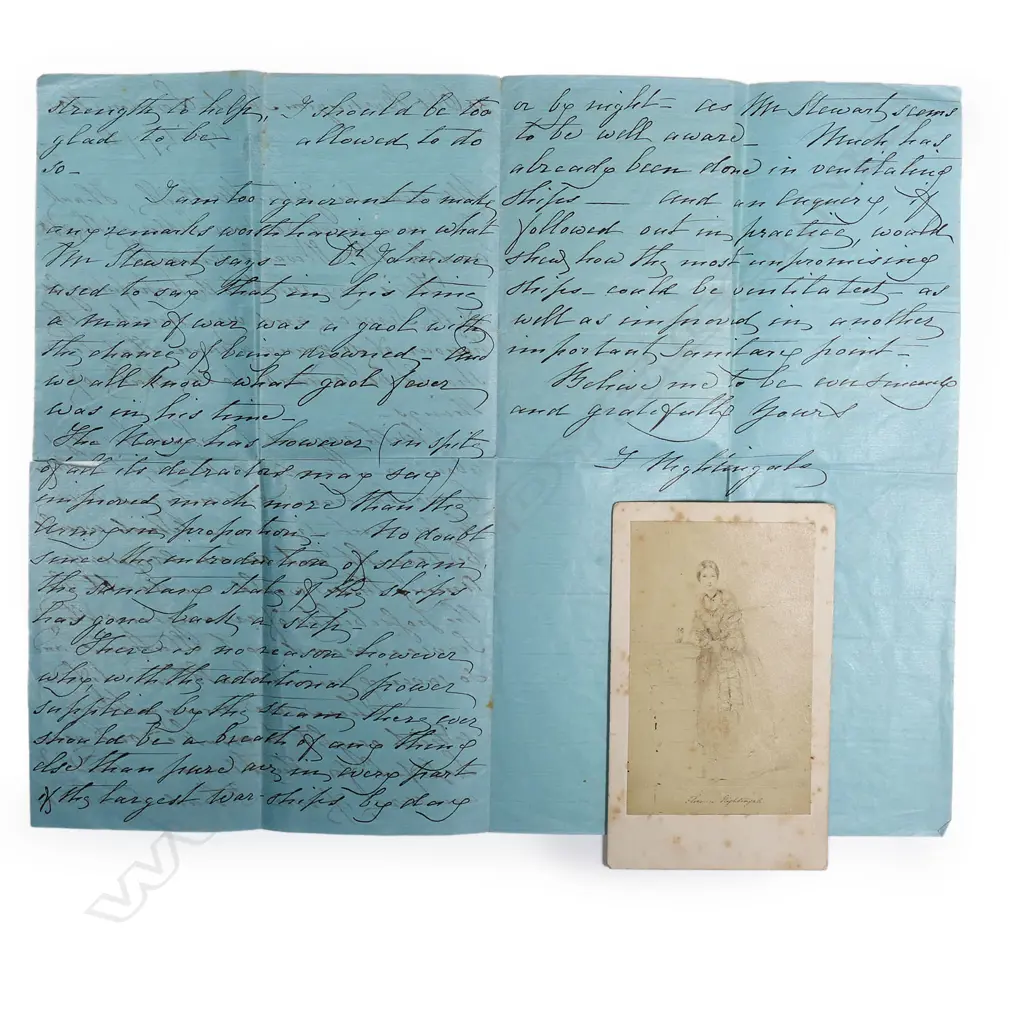 strength to help, I should be too
glad to be allowed to do
so_
I am too ignorant to make
any remarks worth having on what
Mr Stewart says_ Dr Johnson
used to say that in his time
a man of war was a gaol with
the chance of being drowned_ And
we all know what gaol fever
was in his time_
The Navy has however (in spite
of all its detractors may say)
improved much more than the
Army in proportion_ No doubt
since the introduction of steam,
the sanitary state of the ships
has gone back a step_
There is no reason however
why, with the additional power
supplied by the steam, there ever
should be a breath of any thing
else than pure air in every part
of the largest war-ships by day
or by night_ as Mr Stewart seems
to be well aware_ Much has
already been done in ventilating
ships_ and an enquiry, if
followed out in practice, would
shew how the most unpromising
ships_ could be ventilated_ as
well as improved in another
important Sanitary point_
Believe me to be ever sincerely
and gratefully yours
F Nightingale
Nightingale
www